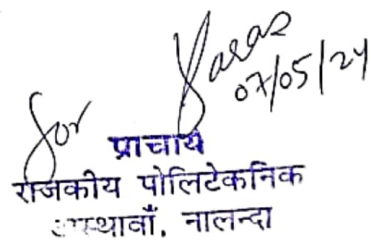 for
07/05/24
प्राचार्य
राजकीय पोलिटेकनिक
अस्थावाँ, नालन्दा